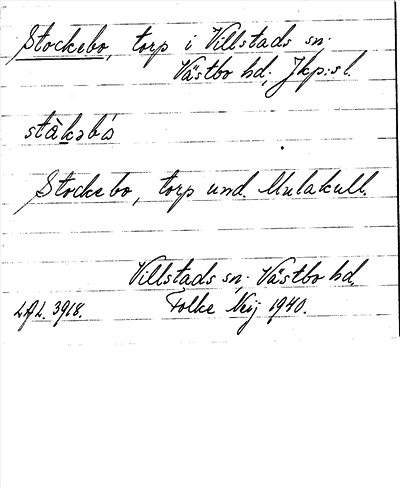 Stockebo, torp i Villstads sn.
Västbo hd, Jkp:s l.
stàkəbó
Stockebo, torp und. Mulakull.
Villstads sn, Västbo hd.
LAL. 3918. Folke Neij 1940.